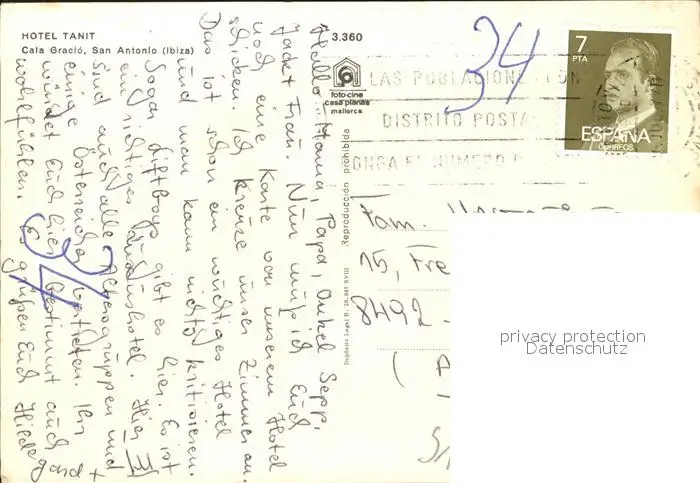 HOTEL TANIT
Cala Gració, San Antonio (Ibiza)
3.360
foto-cine
casa planas
mallorca
Reproducción prohibida
Depósito Legal B. 28.861 XVIII
34
7
PTA
ESPAÑA
CORREOS
LAS POBLACIONE
DISTRITO POSTA
ONGA EL NUMERO
Hallo Mama, Papa, Onkel Sepp,
Nun muß ich Euch
noch eine Karte von unserem Hotel
schicken. Ich kreuze unser Zimmer an.
Das ist schon ein wuchtiges Hotel
und man kann nichts kritisieren.
Sogar Liftboys gibt es hier. Es ist
ein richtiges Hier
sind auch alle Altersgruppen und
einige Österreicher vertreten. Ihr
würdet Euch hier bestimmt auch
wohlfühlen. Es grüßen Euch Hildegard +
34
Fam.
15, Fre
8492
privacy protection
Datenschutz